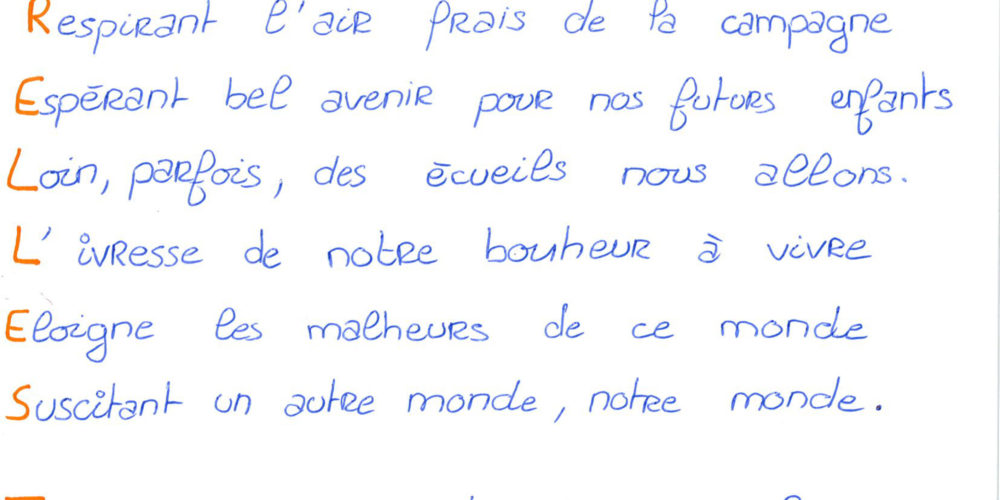 Respirant l'air frais de la campagne
Espérant bel avenir pour nos futurs enfants
Loin, parfois, des écueils nous allons.
L'ivresse de notre bonheur à vivre
Eloigne les malheurs de ce monde
Suscitant un autre monde, notre monde.